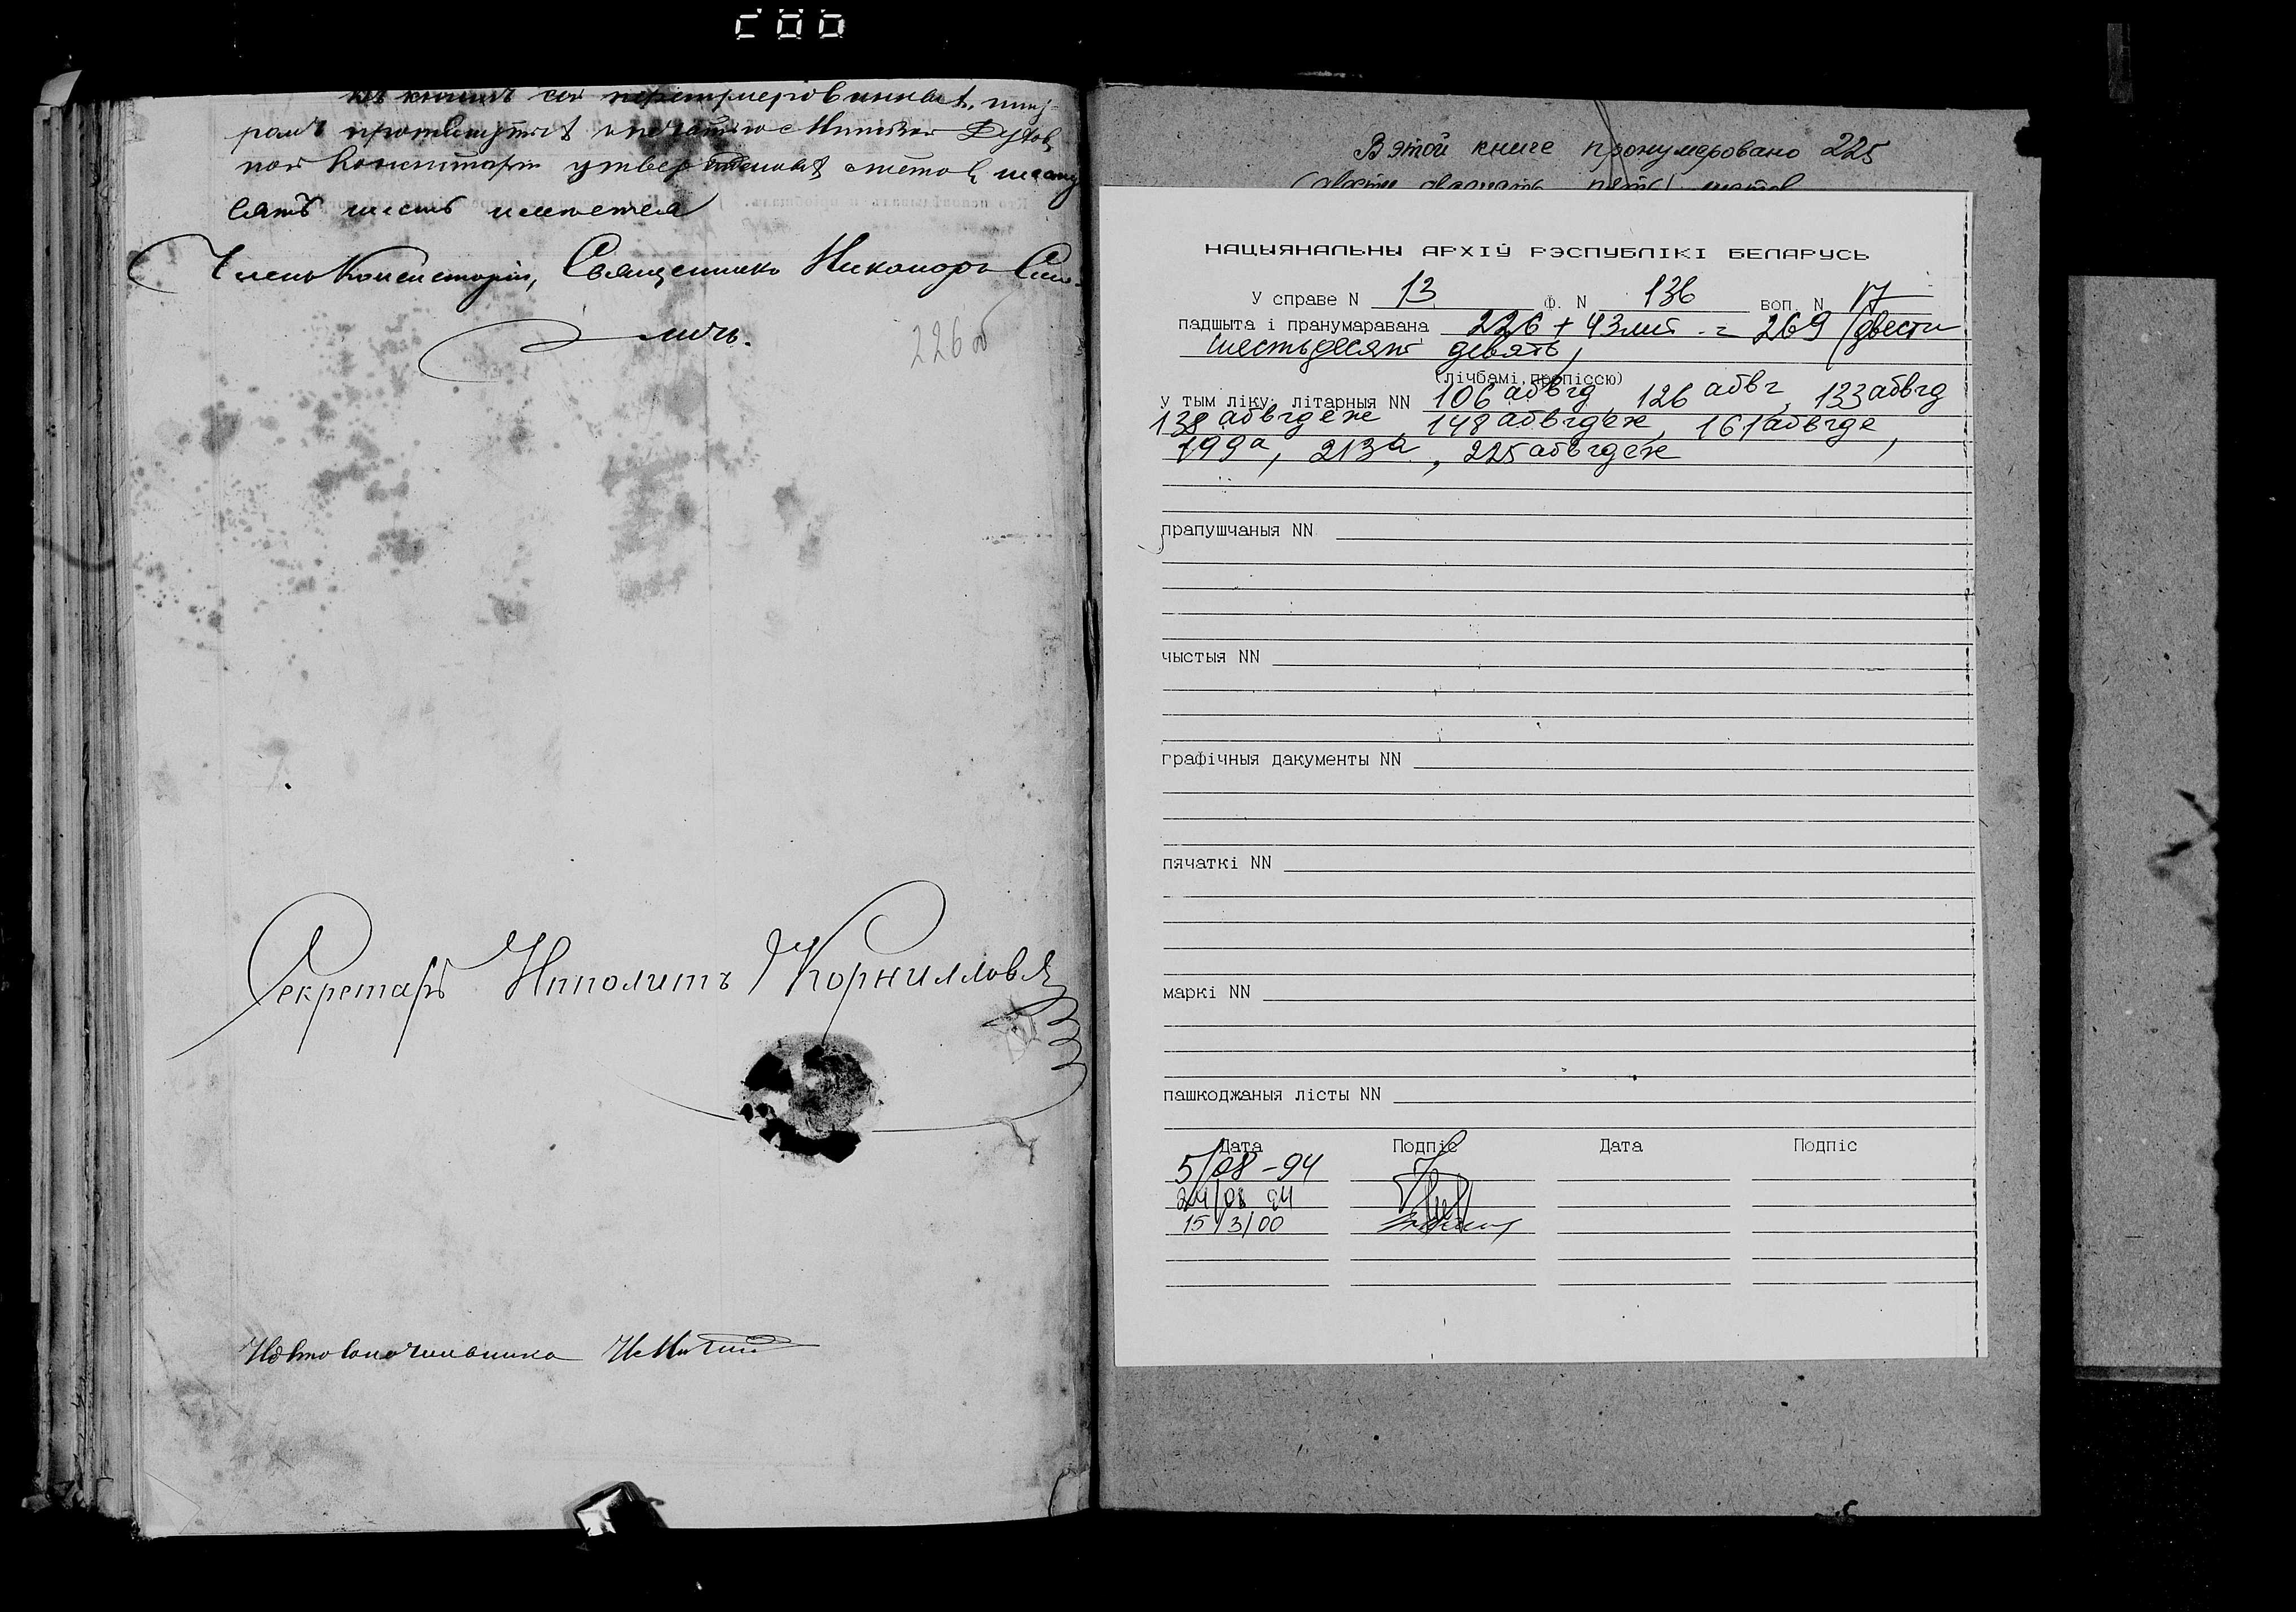 въ книгѣ сей перенумерованныхъ, шну-
ромъ протянутыхъ и печатью Минской Духов
ной Консисторіи утвержденныхъ листовъ
сятъ шесть имѣется
Членъ Консисторіи, Священникъ Никаноръ Смо-
личъ.
226 об
Секретарь Ипполитъ Корниловъ
Столоначальника
В этой книге пронумеровано 225
(двести двадцать пять) листов
НАЦЫЯНАЛЬНЫ АРХІЎ РЭСПУБЛІКІ БЕЛАРУСЬ
У справе N 13 Ф. N 136 воп. N
падшыта і пранумаравана 226 + 43 лит. = 269 (двести
шестьдесят девять)
(лічбамі, пропіссю)
у тым ліку: літарныя NN 106 абвгд, 126 абвг, 133 абвгд
138 абвгдеж, 148 абвгдеж, 161 абвгде,
199а, 213а, 225 абвгдеж
прапушчаныя NN
чыстыя NN
графічныя дакументы NN
пячаткі NN
маркі NN
пашкоджаныя лісты NN
Дата Подпіс Дата Подпіс
5/08-94
24/08 94
15/3/00